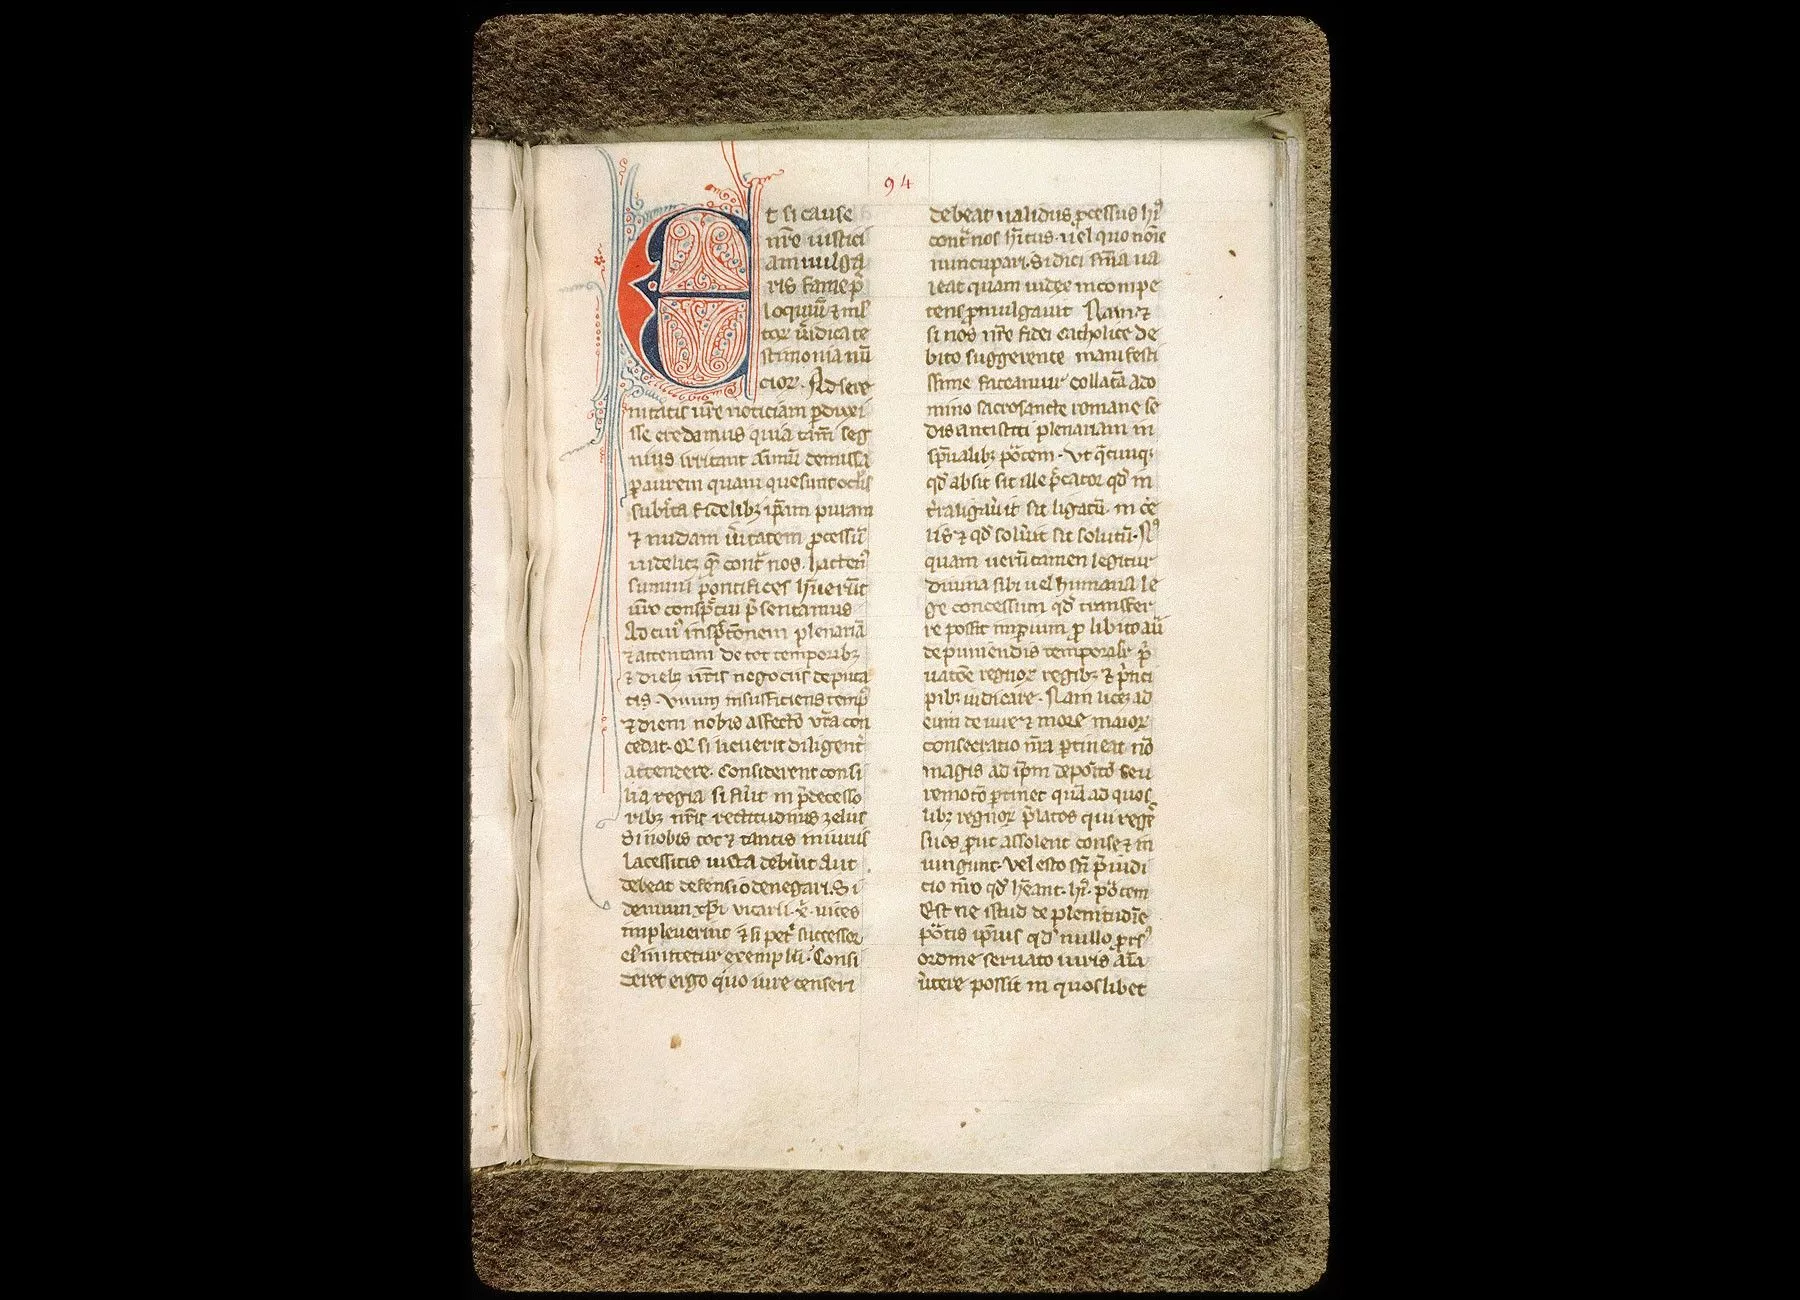 94
Et si cause
nr̄e iustici
am uulga
ris fame p̄
loquiū ⁊ mſ
toꝝ ũidica te
stimonia nū
cior. Ad sere
nitatis ur̄e noticiam ꝑduxi
sse credamus quia tam̄ seg
nius irritant aīmū demissa
ꝑ aurem quam que sunt oc̃lis
subi̾ta fidelibꝫ ip̄am puram
⁊ nudam ũitatem ꝓcessū
uidelicꝫ quē contͣ nos. hacten̾
summi pontifices hũerūt
ur̄o conspc̄tui p̄sentamus
Ad cui̾ inspc̄tōnem plenariā
⁊ attentam de tot temporibꝫ
⁊ diebꝫ ur̄is negociis deputa
tis. Unum insufficiens temp̾
⁊ diem nobis affectō ur̄a con
cedat. Et si licuerit diligent̾
attendere. Considerent consi
lia regia si fũit in p̄decesso
ribꝫ nr̄is rectitudinis zelus
Si nobis tot ⁊ tantis iniuriis
lacessitis iusta debũit aut
debeat defensio denegari. Si
demum xp̄i uicarii. x̄. uices
impleuerint ⁊ si petͥ successor
ei̾ imitetur exemplū. Consi
deret ergo quo iure censeri
debeat ualidus ꝓcessus hi̾
contͣ nos hītus. uel quo noīe
nuncupari. Si dici sn̄ia ua
leat quam iudex incompe
tens ꝓmulgauit Nam ⁊
si nos nr̄e fidei catholice de
bito suggerente manifesti
ssime fateamur collatā a do
mino sacrosancte romane se
dis antistiti plenariam in
sp̄ualibꝫ ptāͤtem. Ut qͣcunqꝫ
qd̄ absit sit ille p̄cator qd̄ in
tr̄a ligaũit sit ligatū. in ce
lis ⁊ qd̄ solũit sit solutū. N̾
quam uerū tamen legitur
diuina sibi uel humana le
ge concessum qd̄ transfer
re possit imperium ꝓ libito aū
de puniendis temporalr̄ p̄
uatōe regnoꝝ regibꝫ ⁊ p̄nci
pibꝫ iudicare. Nam licꝫ ad
eum de iure ⁊ more maioꝝ
consecratio nr̄a ꝑtineat nō
magis ad ip̄m depositō seu
remotō ꝑtinet quā ad quos
libꝫ regnoꝝ p̄latos qui reges
suos ꝓut assolent conse̾t ⁊ in
iungunt. Vel esto sn̄ p̄iudi
cio nr̄o qd̄ hēant. hi̾. ptātem
Est ne istud de plenitudīe
ptātis ip̄ius qd̄ nullo ꝓrs̾
ordine seruato iuris aīa
ũtere possit in quoslibet